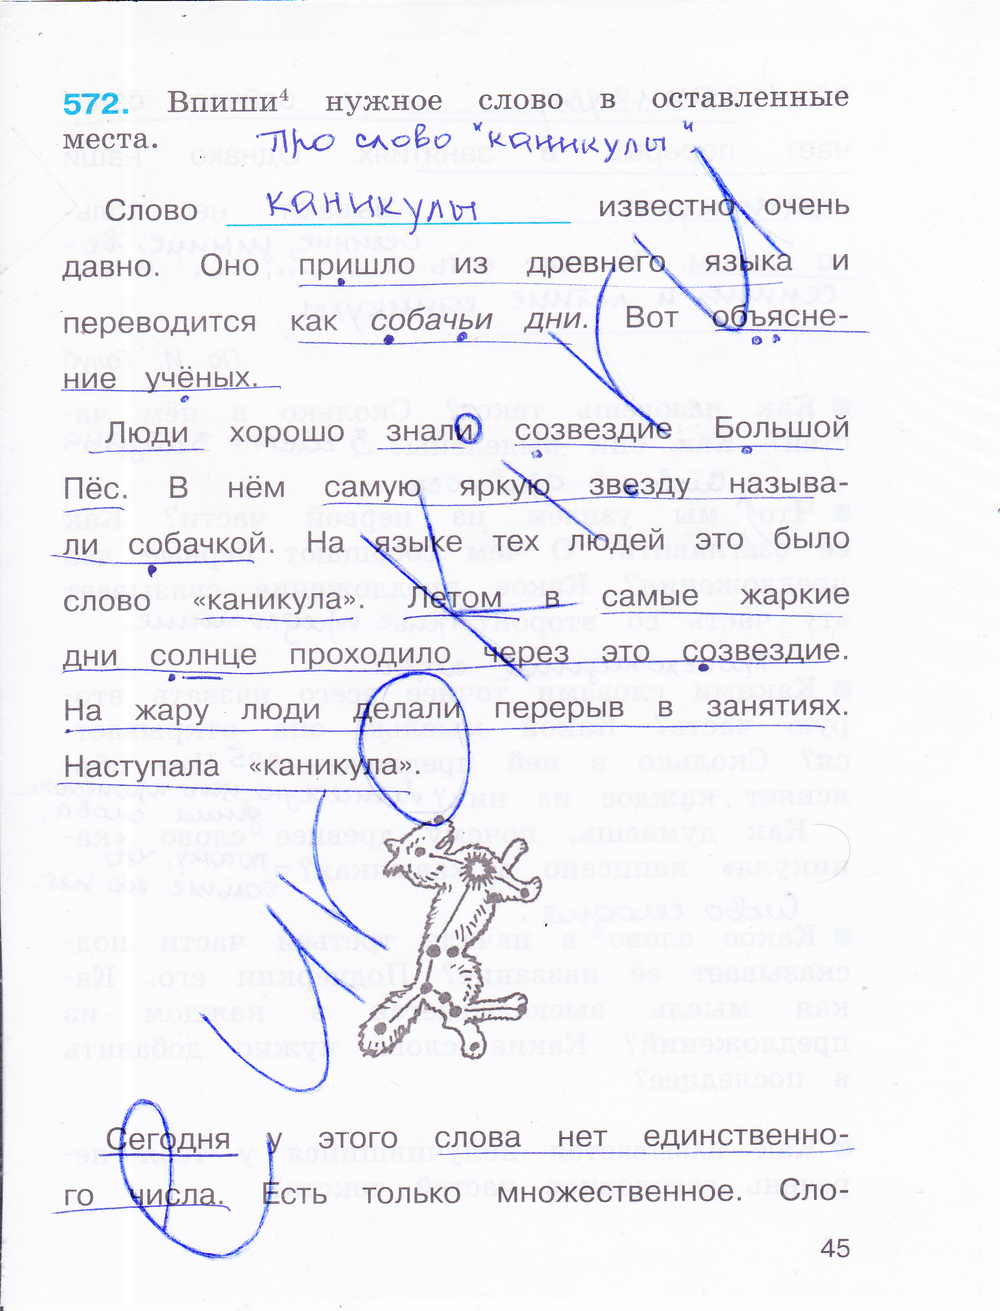 572. Впиши⁴ нужное слово в оставленные
места. Про слово "каникулы"
Слово каникулы известно очень
давно. Оно пришло из древнего языка и
переводится как собачьи дни. Вот объясне-
ние учёных.
Люди хорошо знали созвездие Большой
Пёс. В нём самую яркую звезду называ-
ли собачкой. На языке тех людей это было
слово «каникула». Летом в самые жаркие
дни солнце проходило через это созвездие.
На жару люди делали перерыв в занятиях.
Наступала «каникула».
Сегодня у этого слова нет единственно-
го числа. Есть только множественное. Сло-
45